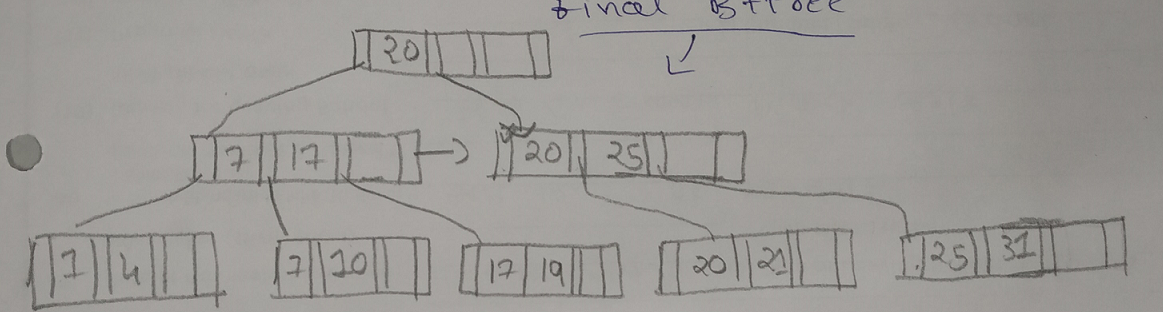 final B+tree
20
7 17 20 25
1 4 7 10 17 19 20 21 25 31